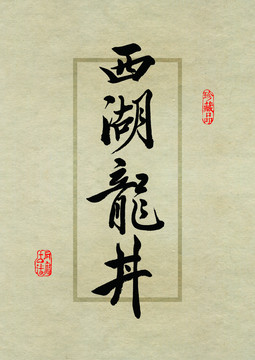 西湖龍井
珍藏品